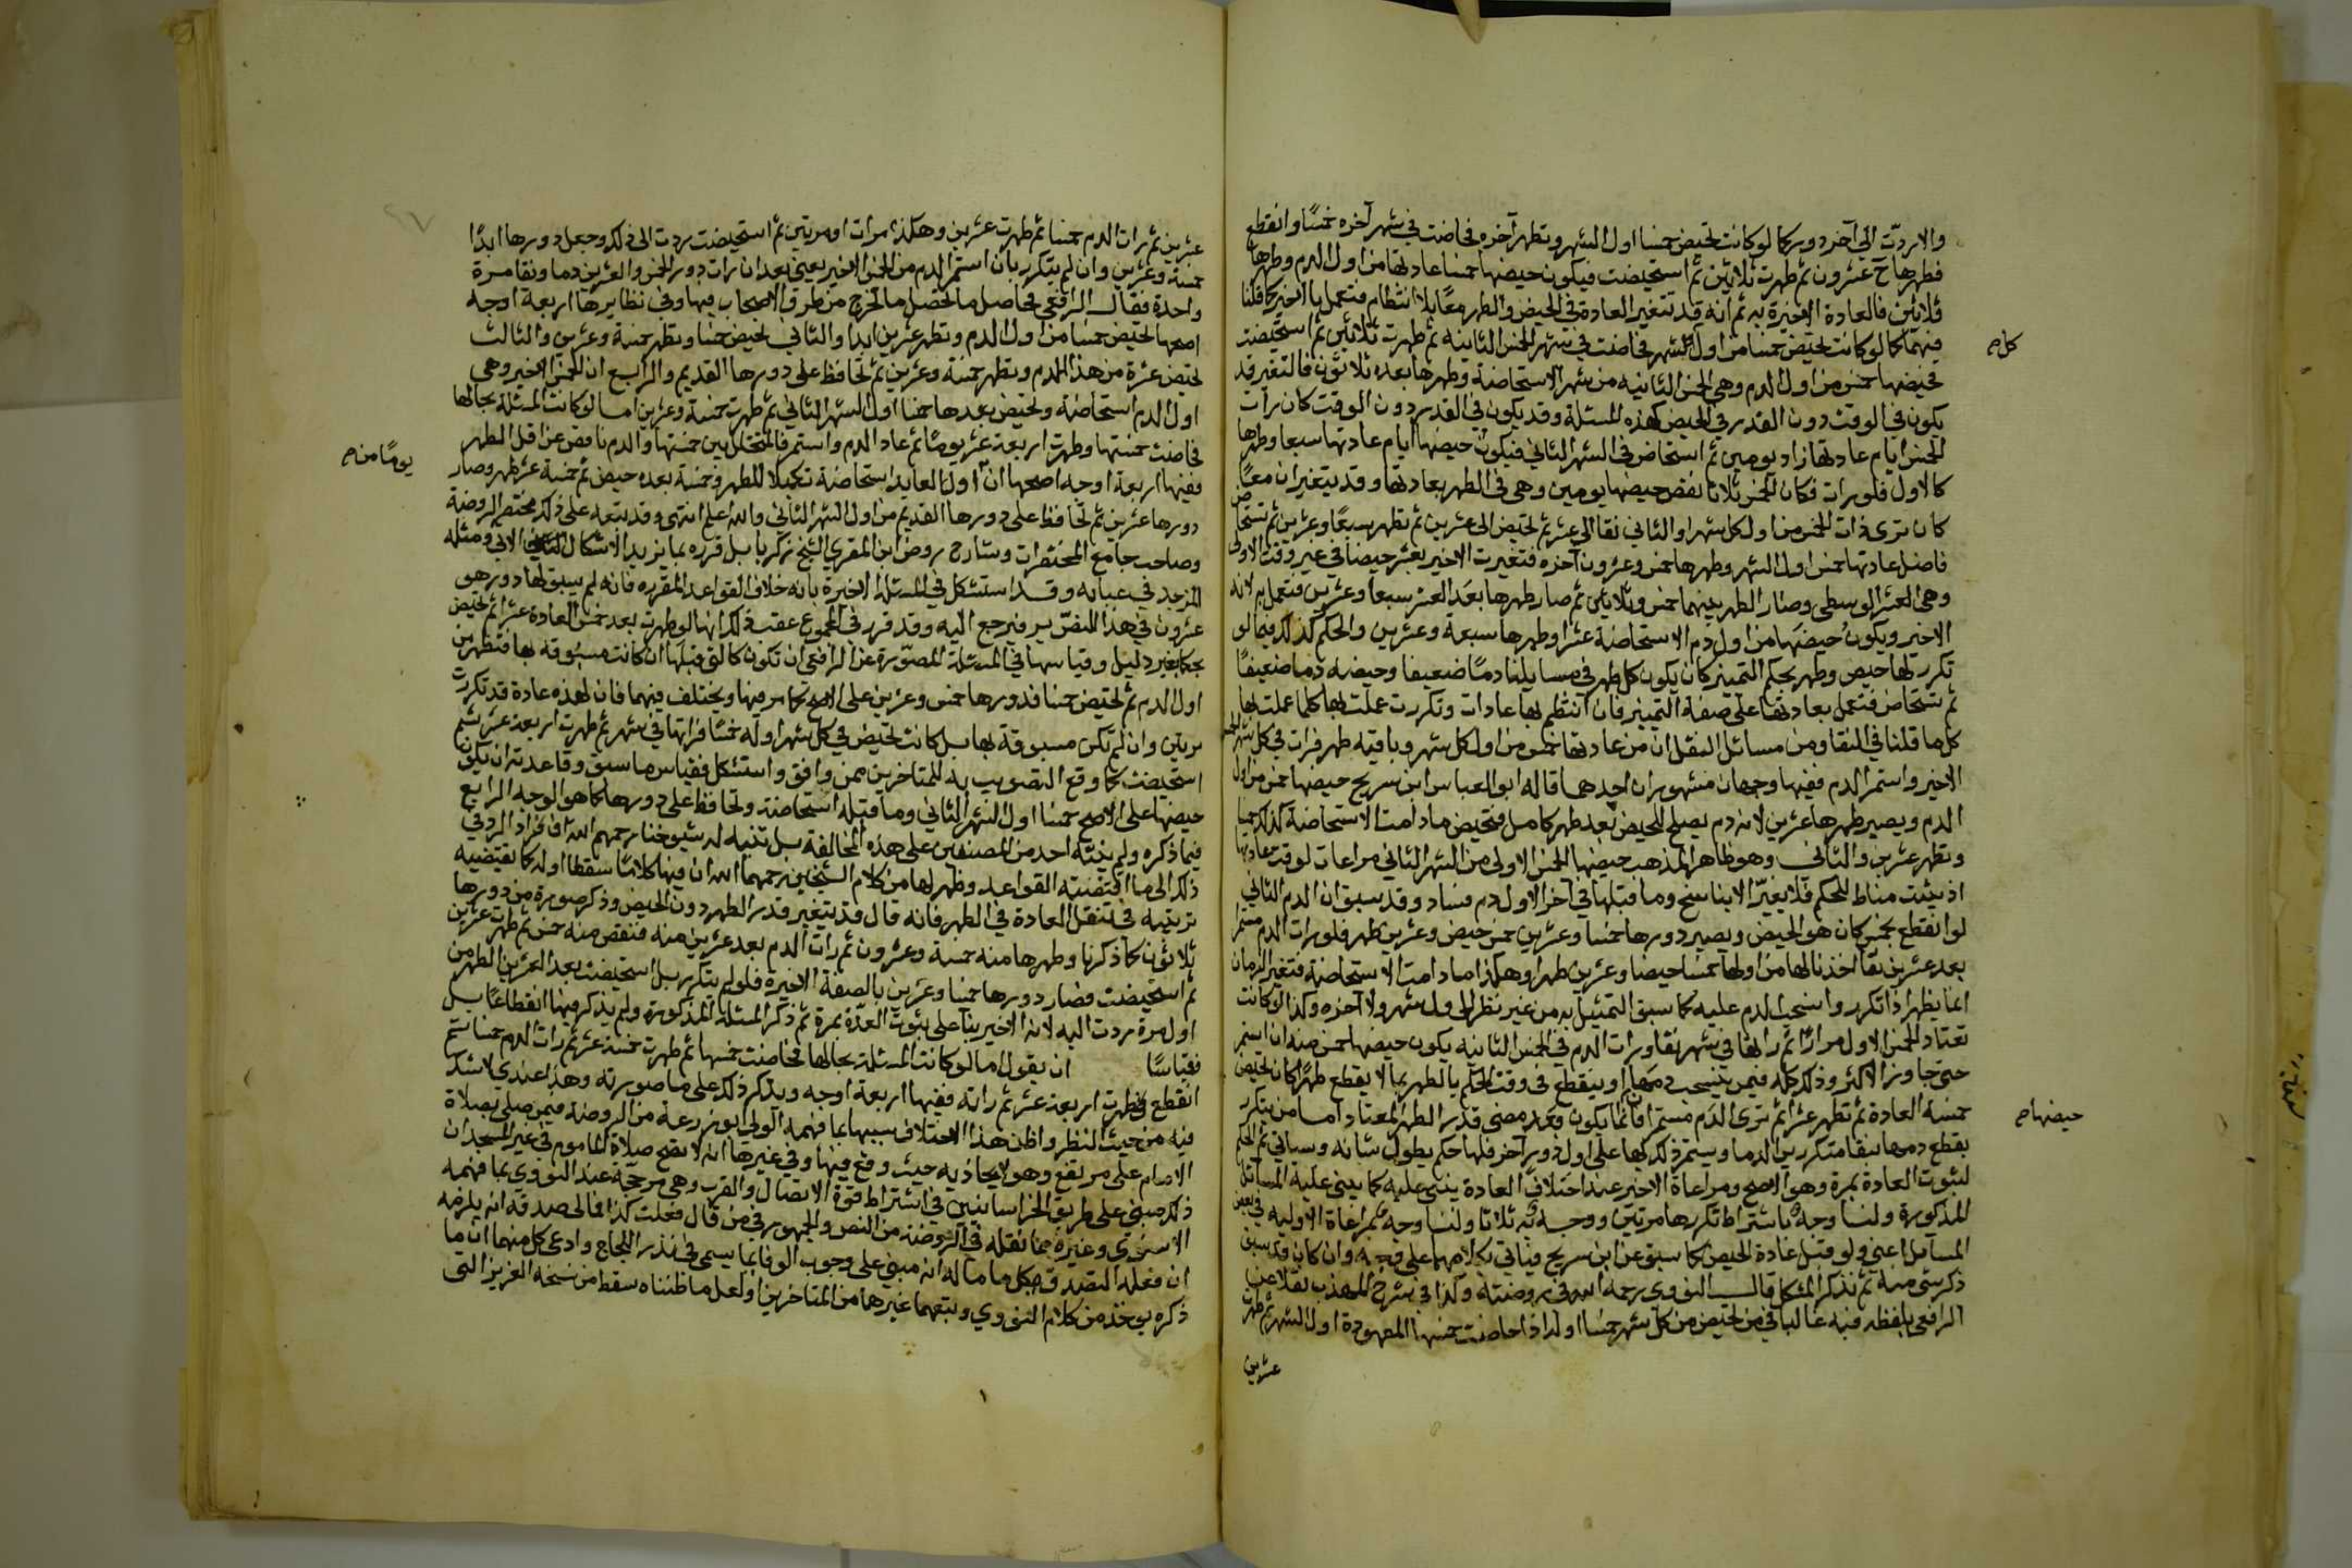 والا ردّت الى آخر دور كما لو كانت تحيض خمسا اول الشهر وتطهر آخره فحاضت في شهر آخره خمسًا وانقطع
فطهرها ح عشرون ثم طهرت ثلاثين ثم استحيضت فيكون حيضها خمسا عادتها من اول الدم وطهرها
ثلاثين فالعادة الاخيرة به ثم انه قد تتغير العادة في الحيض والطهر معًا بلا انتظام فتعمل بالاخير كما قلنا
فيهما كما لو كانت تحيض خمسا من اول الشهر فحاضت في شهر الخمس الثانية ثم طهرت ثلاثين ثم استحيضت
كل صح
فحيضها خمس من اول الدم وهي الخمس الثانية من شهر الاستحاضة وطهرها بعده ثلاثون فالتغير قد
يكون في الوقت دون القدر في الحيض كهذه المسئلة وقد يكون في القدر دون الوقت كان رات
الخمس ايام عادتها زاد يومين ثم استحاض في الشهر الثاني فيكون حيضها ايام عادتها سبعا وطهرها
كالاول فلو رات فكان الخمس ثلاثا نقص حيضها يومين وهي في الطهر بعادتها وقد يتغيران معًا
كان ترى ذات الخمس من اول كل شهر والثاني نقا الى عشر ثم تحيض الى عشرين ثم تطهر سبعًا وعشرين ثم تستحاض
فاضل عادتها خمس اول الشهر وطهرها خمس وعشرون آخره فتغيرت الاخير بعشر حيضا في غير وقت الاولى
وهي العشر الوسطى وصار الطهر بينهما خمس وثلاثين ثم صار طهرها بعد العشر سبعا وعشرين فتعمل به لانه
الاخير ويكون حيضها من اول دم الاستحاضة عشرا وطهرها سبعة وعشرين والحكم كذلك فيما لو
تكرر لها حيض وطهر بحكم التمييز كان يكون كل طهر في مسايلنا دمًا ضعيفا وحيضه دما ضعيفًا
ثم تستحاض فتعمل بعادتها على صفة التمييز فان انتظم لها عادات وتكررت عملت بها كلما عملت بها
كل ما قلنا في النقا ومن مسائل النقل ان من عادتها خمس من اول كل شهر وباقيه طهر فرات في كل شهر الخمس
الاخير واستمر الدم ففيها وجهان مشهوران احدهما قاله ابو العباس ابن سريج حيضها خمس من اول
الدم ويصير طهرها عشرين لانه دم يصلح للحيض بعد طهر كامل فتحيض ما دامت الاستحاضة كذلك خمسا
وتطهر عشرين والثاني وهو ظاهر المذهب حيضها الخمس الاولى من الشهر الثاني مراعات لوقت عادتها
اذ يثبت مناط للحكم فلا يغيّر الا بناسخ وما قبلها في آخر الاول دم فساد وقد سبق ان الدم الثاني
لو انقطع بخمس كان هو الحيض ويصير دورها خمسا وعشرين خمس حيض وعشرين طهر فلو رات الدم مستمرا
بعد عشرين نقا اخذنا لها من اولها خمسا حيضا وعشرين طهرا وهكذا ما دامت الاستحاضة فتغير الزمان
انما يظهر اذا تكرر وانسحب الدم عليه كما سبق التمثيل به من غير نظر الى اول شهر ولا آخره وكذا لو كانت
تعتاد الخمس الاول مرارًا ثم راتها في شهر نقا ورات الدم في الخمس الثانية يكون حيضها الخمس منه ان استمر
حتى جاوز الاكثر وذلك كله فيمن ينسحب دمها او ينقطع في وقت الحكم بالطهر بما لا يقطع طهرًا كان تحيض
خمسة العادة ثم تطهر عشرا ثم ترى الدم مستمرا فانما يكون بعد مضى قدر الطهر المعتاد اما من يتكرر
حيضها صح
بقطع دمها بنقا متكرر بين الدما ويستمر ذلك بها على اول دور آخر فلها حكم يطول شانه وسياتي ثم الحكم
لثبوت العادة بمرة وهو الاصح ومراعاة الاخير عند اختلاف العادة ينبى عليه كما يبنى عليه المسائل
المذكورة ولنا وجه باشتراط تكررها مرتين ووجه به ثلاثا ولنا وجه بمراعاة الاوليه في بعض
المسائل اعني ولو قبل عادة الحيض كما سبق عن ابن سريج فياتي كلامهما على وجه وان كان قد سبق
ذكر شى منه ثم نذكر المشكل قال النووي رحمه الله في روضته وكذا في شرح المهذب نقلا عن
الرافعي بلفظه فيه غالبا في من تحيض من كل شهر خمسا اوله اذا حاضت خمسها المعهودة اول الشهر ثم طهرت
عشرين
عشرين ثم رات الدم خمسا ثم طهرت عشرين وهكذا مرات او مرتين ثم استحيضت ردت الى ذلك وجعل دورها ابدًا
خمسة وعشرين وان لم يتكرر بان استمر الدم من الخمس الاخير يعني بعد ان رات دور الخمس والعشرين دما ونقا مرة
واحدة فقال الرافعي فحاصل ما تحصل ما تخرج من طرق الاصحاب فيها وفي نظايرها اربعة اوجه
اصحها تحيض خمسا من اول الدم وتطهر عشرين ابدا والثاني تحيض خمسا وتطهر خمسة وعشرين والثالث
تحيض عشرة من هذا الدم وتطهر خمسة وعشرين ثم تحافظ على دورها القديم والرابع ان الخمس الاخير وهي
اول الدم استحاضة وتحيض بعدها خمسا اول الشهر الثاني ثم طهرت خمسة وعشرين اما لو كانت المسئلة بحالها
فحاضت خمستها وطهرت اربعة عشر يومًا ثم عاد الدم واستمر فالمتخلل بين خمستها والدم ناقص عن اقل الطهر
ففيها اربعة اوجه اصحها ان اول العايد استحاضة تكميلا للطهر وخمسة بعده حيض ثم خمسة عشر طهر وصار
يومًا من صح
دورها عشرين ثم تحافظ على دورها القديم من اول الشهر الثاني والله اعلم انتهى وقد تبعه على ذلك مختصر الروضة
وصاحب جامع المختصرات وشارح روض ابن المقري الشيخ زكريا بل قرره بما يزيد الاشكال الاتي ومثله
المزجد في عبابه وقد استشكل في المسئلة الاخيرة بانه خلاف القواعد المقرره فانه لم يسبق لها دور هو
عشرون في هذا المنصّ به فنرجع اليه وقد قرر في المجموع عقب ذلك انها لو طهرت بعد خمس العادة عشرا ثم تحيض
بحكم بغير دليل وقياسها في المسئلة المصوّرة عن الرافعي ان تكون كالتي قبلها ان كانت مسبوقه بها فتطهر من
اول الدم ثم تحيض خمسا فدورها خمس وعشرين على الاصح كما مر فيها ويختلف فيهما فان لهذه عادة قد تكررت
مرتين وان لم تكن مسبوقة بها بل كانت تحيض في كل شهر اوله خمسًا فراتها في شهر ثم طهرت اربعة عشر ثم
استحيضت كما وقع التصويب به للمتاخرين ممن وافق واستشكل فقياس ما سبق وقاعدته ان يكون
حيضها على الاصح خمسا اول الشهر الثاني وما قبله استحاضة وتحافظ على دورها كما هو الوجه الرابع
فيما ذكره ولم ينبّه احد من المصنفين على هذه المخالفة بل تنبه له شيوخنا رحمهم الله فافراد الرد في
ذلك الى ما اقتضته القواعد وظهر لها من كلام الشيخين رحمهما الله ان فيها كلامًا سقط اوله كما يقتضيه
ترتيبه في تنقل العادة في الطهر فانه قال وقد يتغير قدر الطهر دون الحيض وذكر صورة من دورها
ثلاثون كما ذكرنا وطهرها منه خمسة وعشرون ثم رات الدم بعد عشرين منه فنقص منه خمس ثم طهرت عشرين
ثم استحيضت فصار دورها خمسا وعشرين بالصفة الاخيرة فلو لم يتكرر بل استحيضت بعد العشرين الطهر من
اول مرة ردت اليه لانه الاخير بنا على ثبوت العدّة بمرة ثم ذكر المسئلة المذكورة ولم يذكر فيها انقطاعًا بل
فقياسًا ان يقول اما لو كانت المسئلة بحالها فحاضت خمسها ثم طهرت خمسة عشر ثم رات الدم خمسا ثم
انقطع وطهرت اربعة عشر ثم راته ففيها اربعة اوجه ويذكر ذلك على ما صورته وهذا عندي لا شك
فيه من حيث النظر واظن هذا الاختلاف سببها بما فهمه الولي ابو زرعة من الروضة فيمن صلى بصلاة
الامام على مرتفع وهو لا يحاذيه حيث وقع فيها وفي غيرها انه لا تصح صلاة الماموم في غير المسجد ان
ذلك مبني على طريق الخراسانيين في اشتراط قوة الاتصال والقرب وهي مرجحة عند النووي بما فهمه
الاسنوي وغيره مما نقله في الروضة من النص والجمهور في من قال فعلت كذا فمالى صدقة انه يلزمه
ان فعله التصدق بكل ما ماله انه مبني على وجوب الوفا بما يسمى في نذر اللجاج وادعى كل منهما ان ما
ذكره يوخذ من كلام النووي وتبعهما غيرهما من المتاخرين ولعل ما ظنناه سقط من نسخه العزيز التي